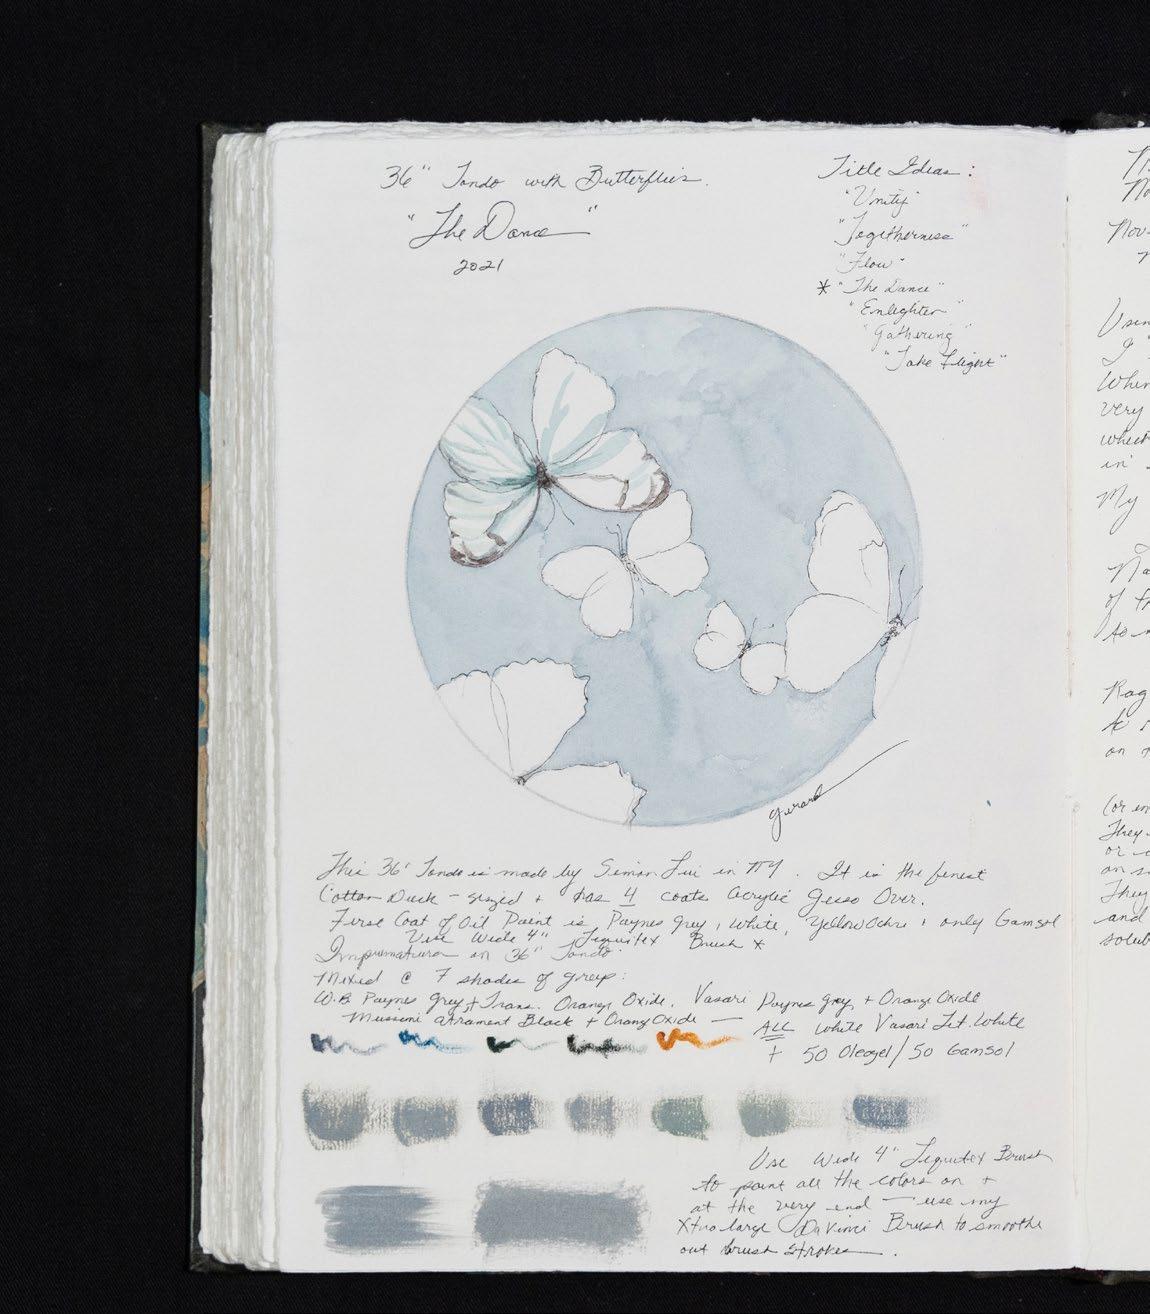 36" Tondo with Butterflies.
"The Dance"
2021
Title Ideas:
"Unity"
"Togetherness"
"Flow"
* "The Dance"
"Enlighten"
"Gathering"
"Take Flight"
Gerard
This 36" Tondo is made by Simon Liu in NY. It is the finest
Cotton Duck - sized + has 4 coats Acrylic Gesso Over.
First Coat of Oil Paint is Paynes Grey, White, Yellow Ochre, only Gamsol
Use Wide 4" Liquitex Brush *
Imprimatura on 36" Tondo
Mixed @ 7 shades of greys:
W.B. Paynes Grey + Trans. Orange Oxide. Vasari Paynes Grey + Orange Oxide
Mussini Atrament Black + Orange Oxide — ALL White Vasari Tit. White
+ 50 Oleogel/50 Gamsol
Use Wide 4" Liquitex Brush
to paint all the colors on +
at the very end — use my
Xtra large DaVinci Brush to smooth
out brush strokes.
Nov-
Usin
I
When
very
which
in
My
of
Rag
on
(or
They
or
on
They
and
solub